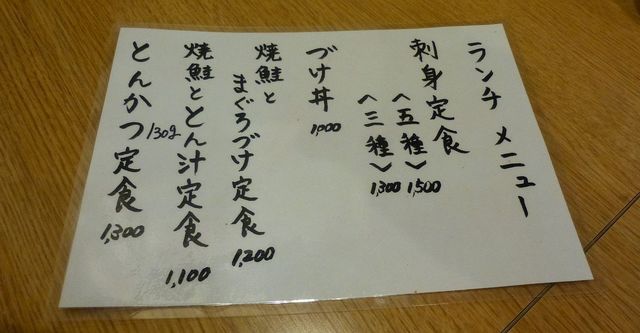 ランチ メニュー
刺身定食
〈五種〉 1,500
〈三種〉 1,300
づけ丼 1,000
焼鮭と
まぐろづけ定食 1,200
焼鮭ととん汁定食 1,100
とんかつ定食 130g 1,300